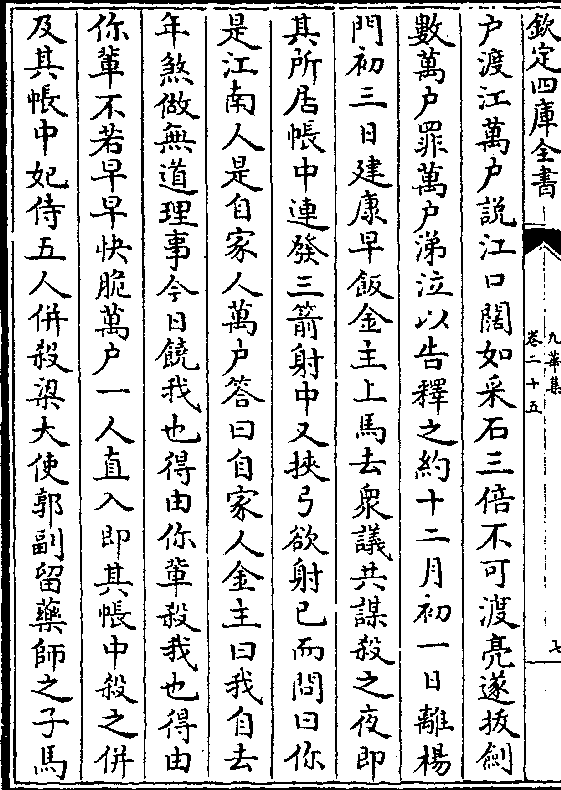 欽定四庫全書
九華集
卷二十五
七
户渡江萬户説江口闊如采石三倍不可渡亮遂拔劍
數萬户罪萬户涕泣以告釋之約十二月初一日離楊
門初三日建康早飯金主上馬去衆議共謀殺之夜即
其所居帳中連發三箭射中又挾弓欲射已而問曰你
是江南人是自家人萬户答曰自家人金主曰我自去
年煞做無道理事今日饒我也得由你輩殺我也得由
你輩不若早早快脆萬户一人直入即其帳中殺之併
及其帳中妃侍五人併殺梁大使郭副留藥師之子馬